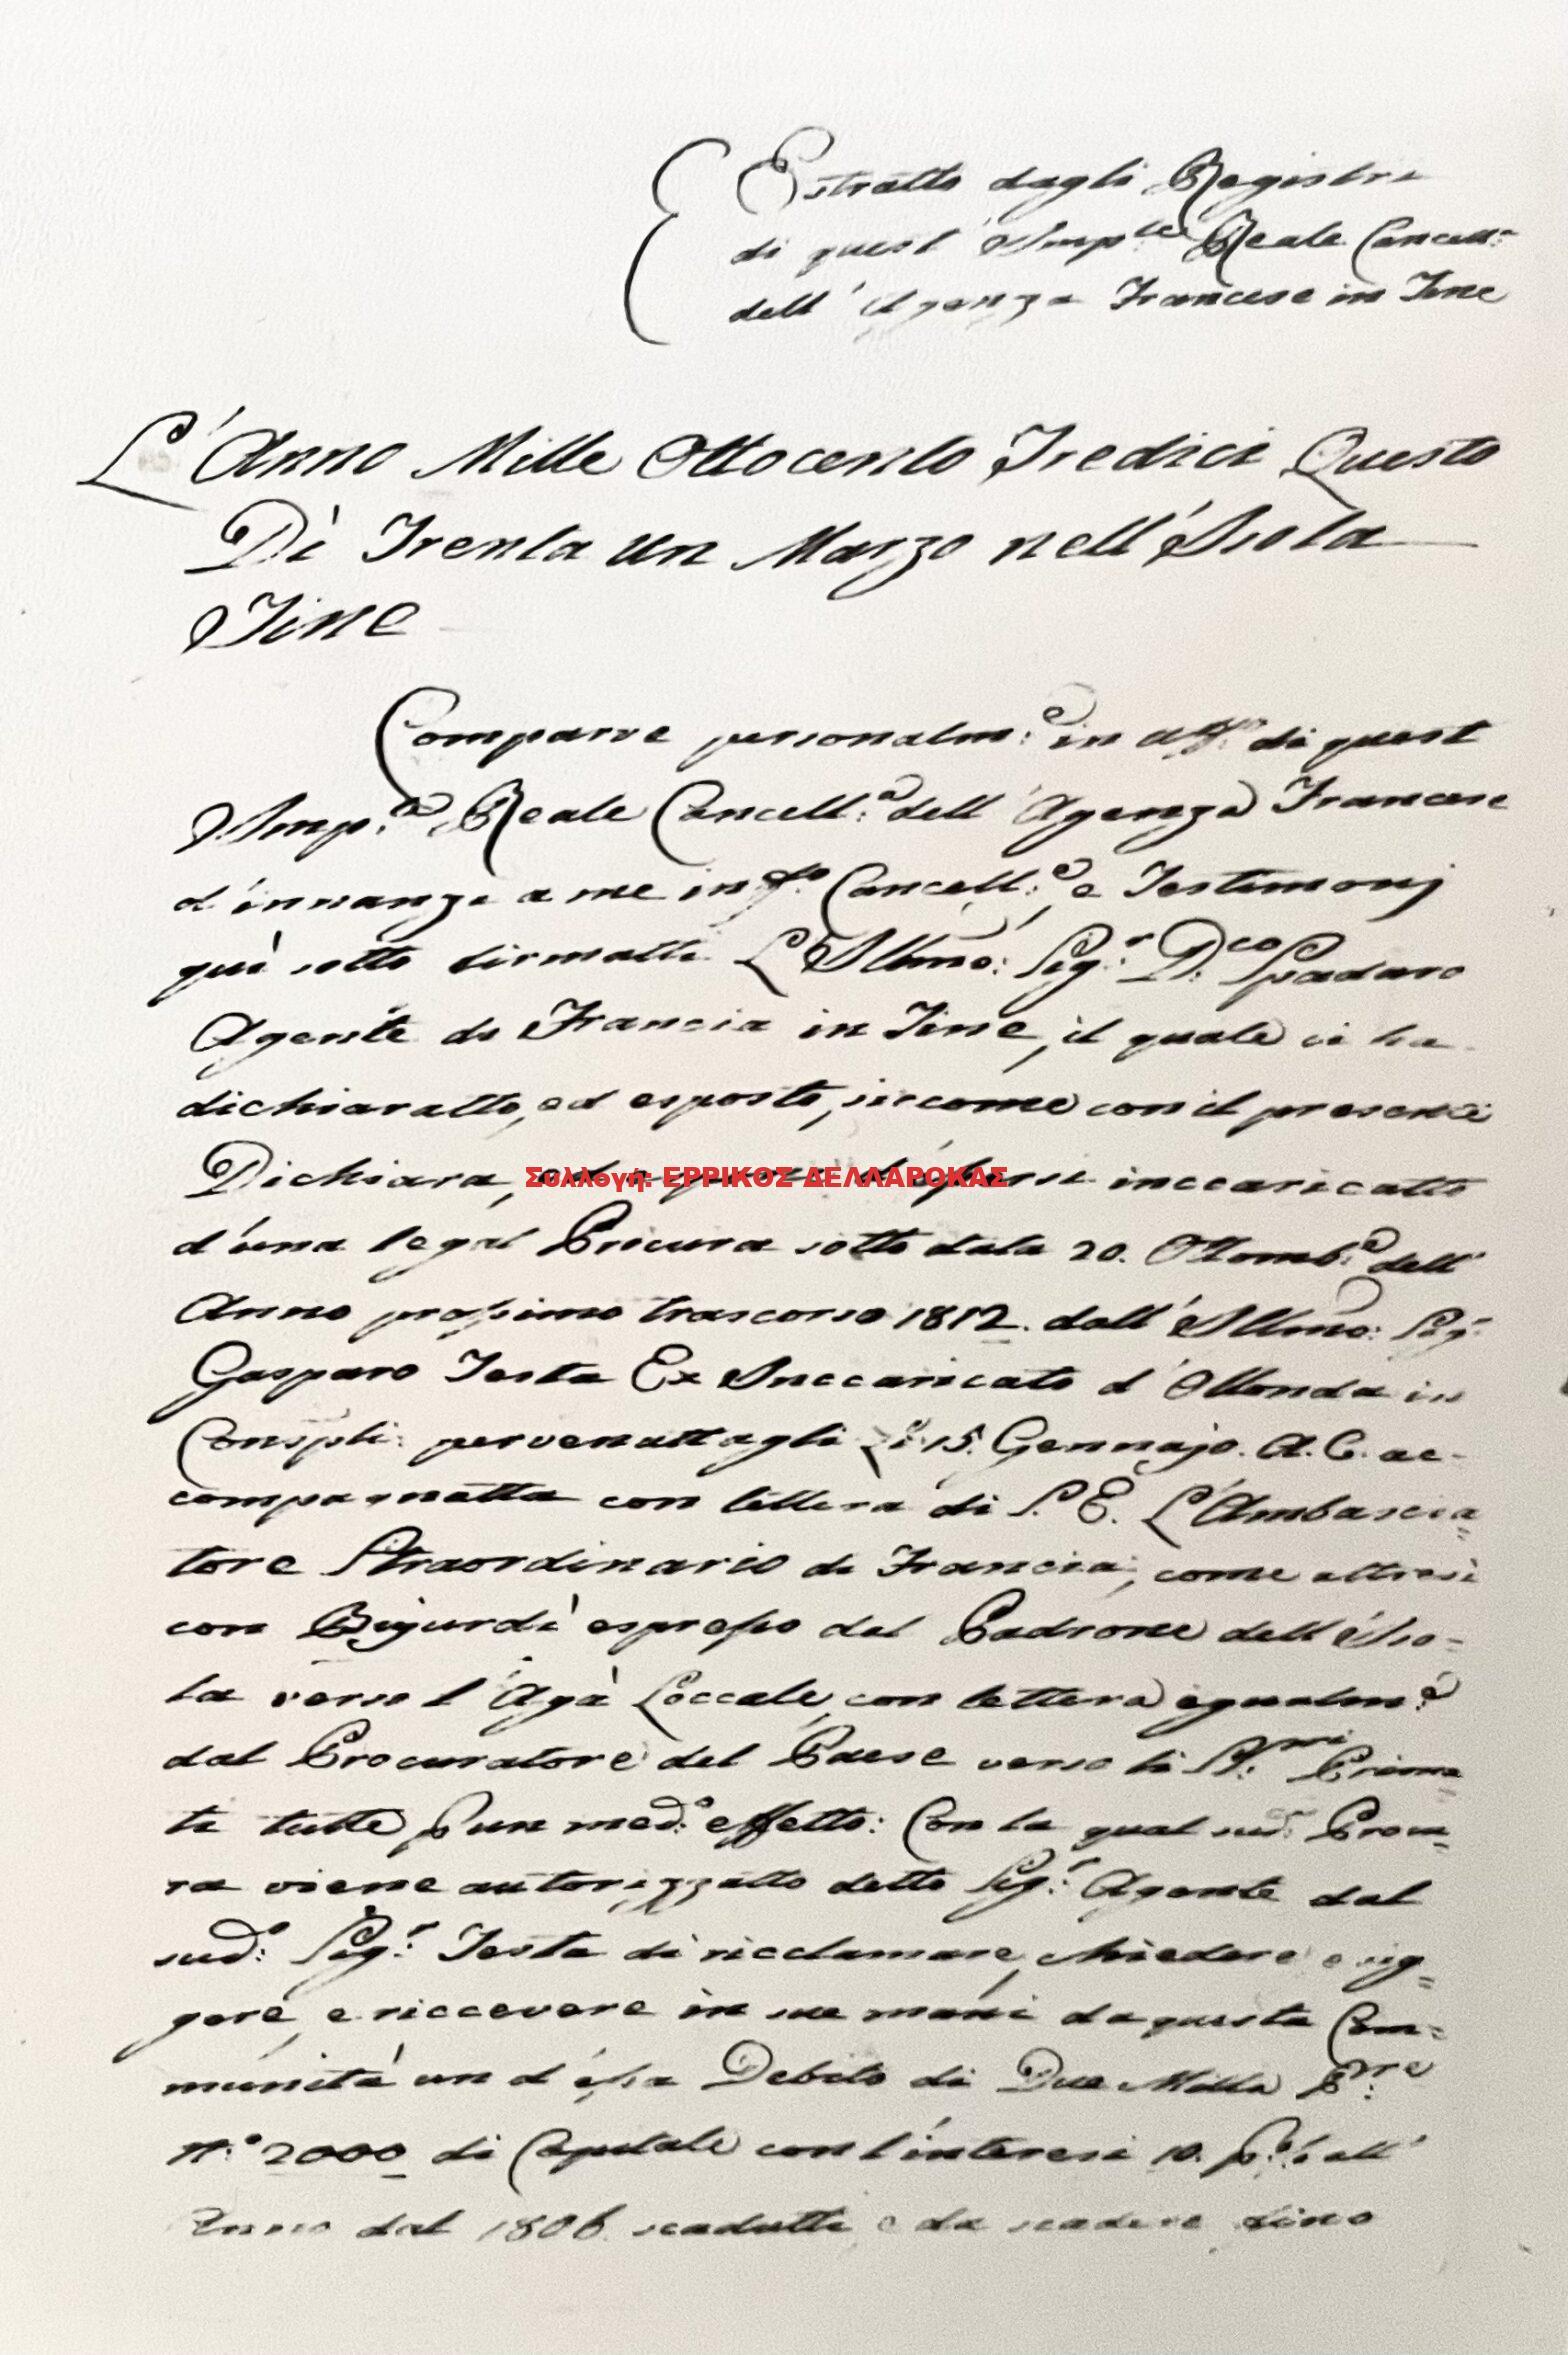 Estratto dagli Registri
di quest' Imp:le Reale Cancell:a
dell' Agenza Francese in Tine
L'Anno Mille Ottocento Tredici Questo
Dì Trenta un Marzo nell' Isola
Tine
Comparve personalm:e in di quest
Imp:le Reale Cancell:a dell' Agenza Francese
d'innanzi a me Cancell:e, e Testimonj
quì sotto firmatti L'Illmo: Sig:r D:co Spadaro
Agente di Francia in Tine, il quale ci ha
dichiaratto, ed esposto, siccome con il presente
Dichiara, ed inccaricatto
Συλλογή: ΕΡΡΙΚΟΣ ΔΕΛΛΑΡΟΚΑΣ
d'una legal Procura sotto data 20. dell'
Anno prossimo trascorso 1812. dall' Illmo: Sig:r
Gasparo Testa Ex Inccaricato d'Ollonda in
Conspli: pervenuttagli 15. Gennajo. A. C. ac-
compagnatta con lettera di S. E. L'Ambascia=
tore Straordinario di Francia, come altresì
con Bujurdì espresso del Padrone dell' Iso=
la verso l'Agà Loccale, con lettera egualm:e
dal Procuratore del Paese verso li Prima=
ti tutte p un med:o effetto: Con la qual sud:a Procu=
ra viene autorizzatto detto Sig:r Agente dal
sud:o Sig:r Testa di ricclamare, chiedere esig=
gere, e riccevere in sue mani da questa Com=
munità un d'essa Debito di Due Milla
N:o 2000 di Capitale con l'interesi 10. all'
Anno dal 1806 scadutti e da scadere fino